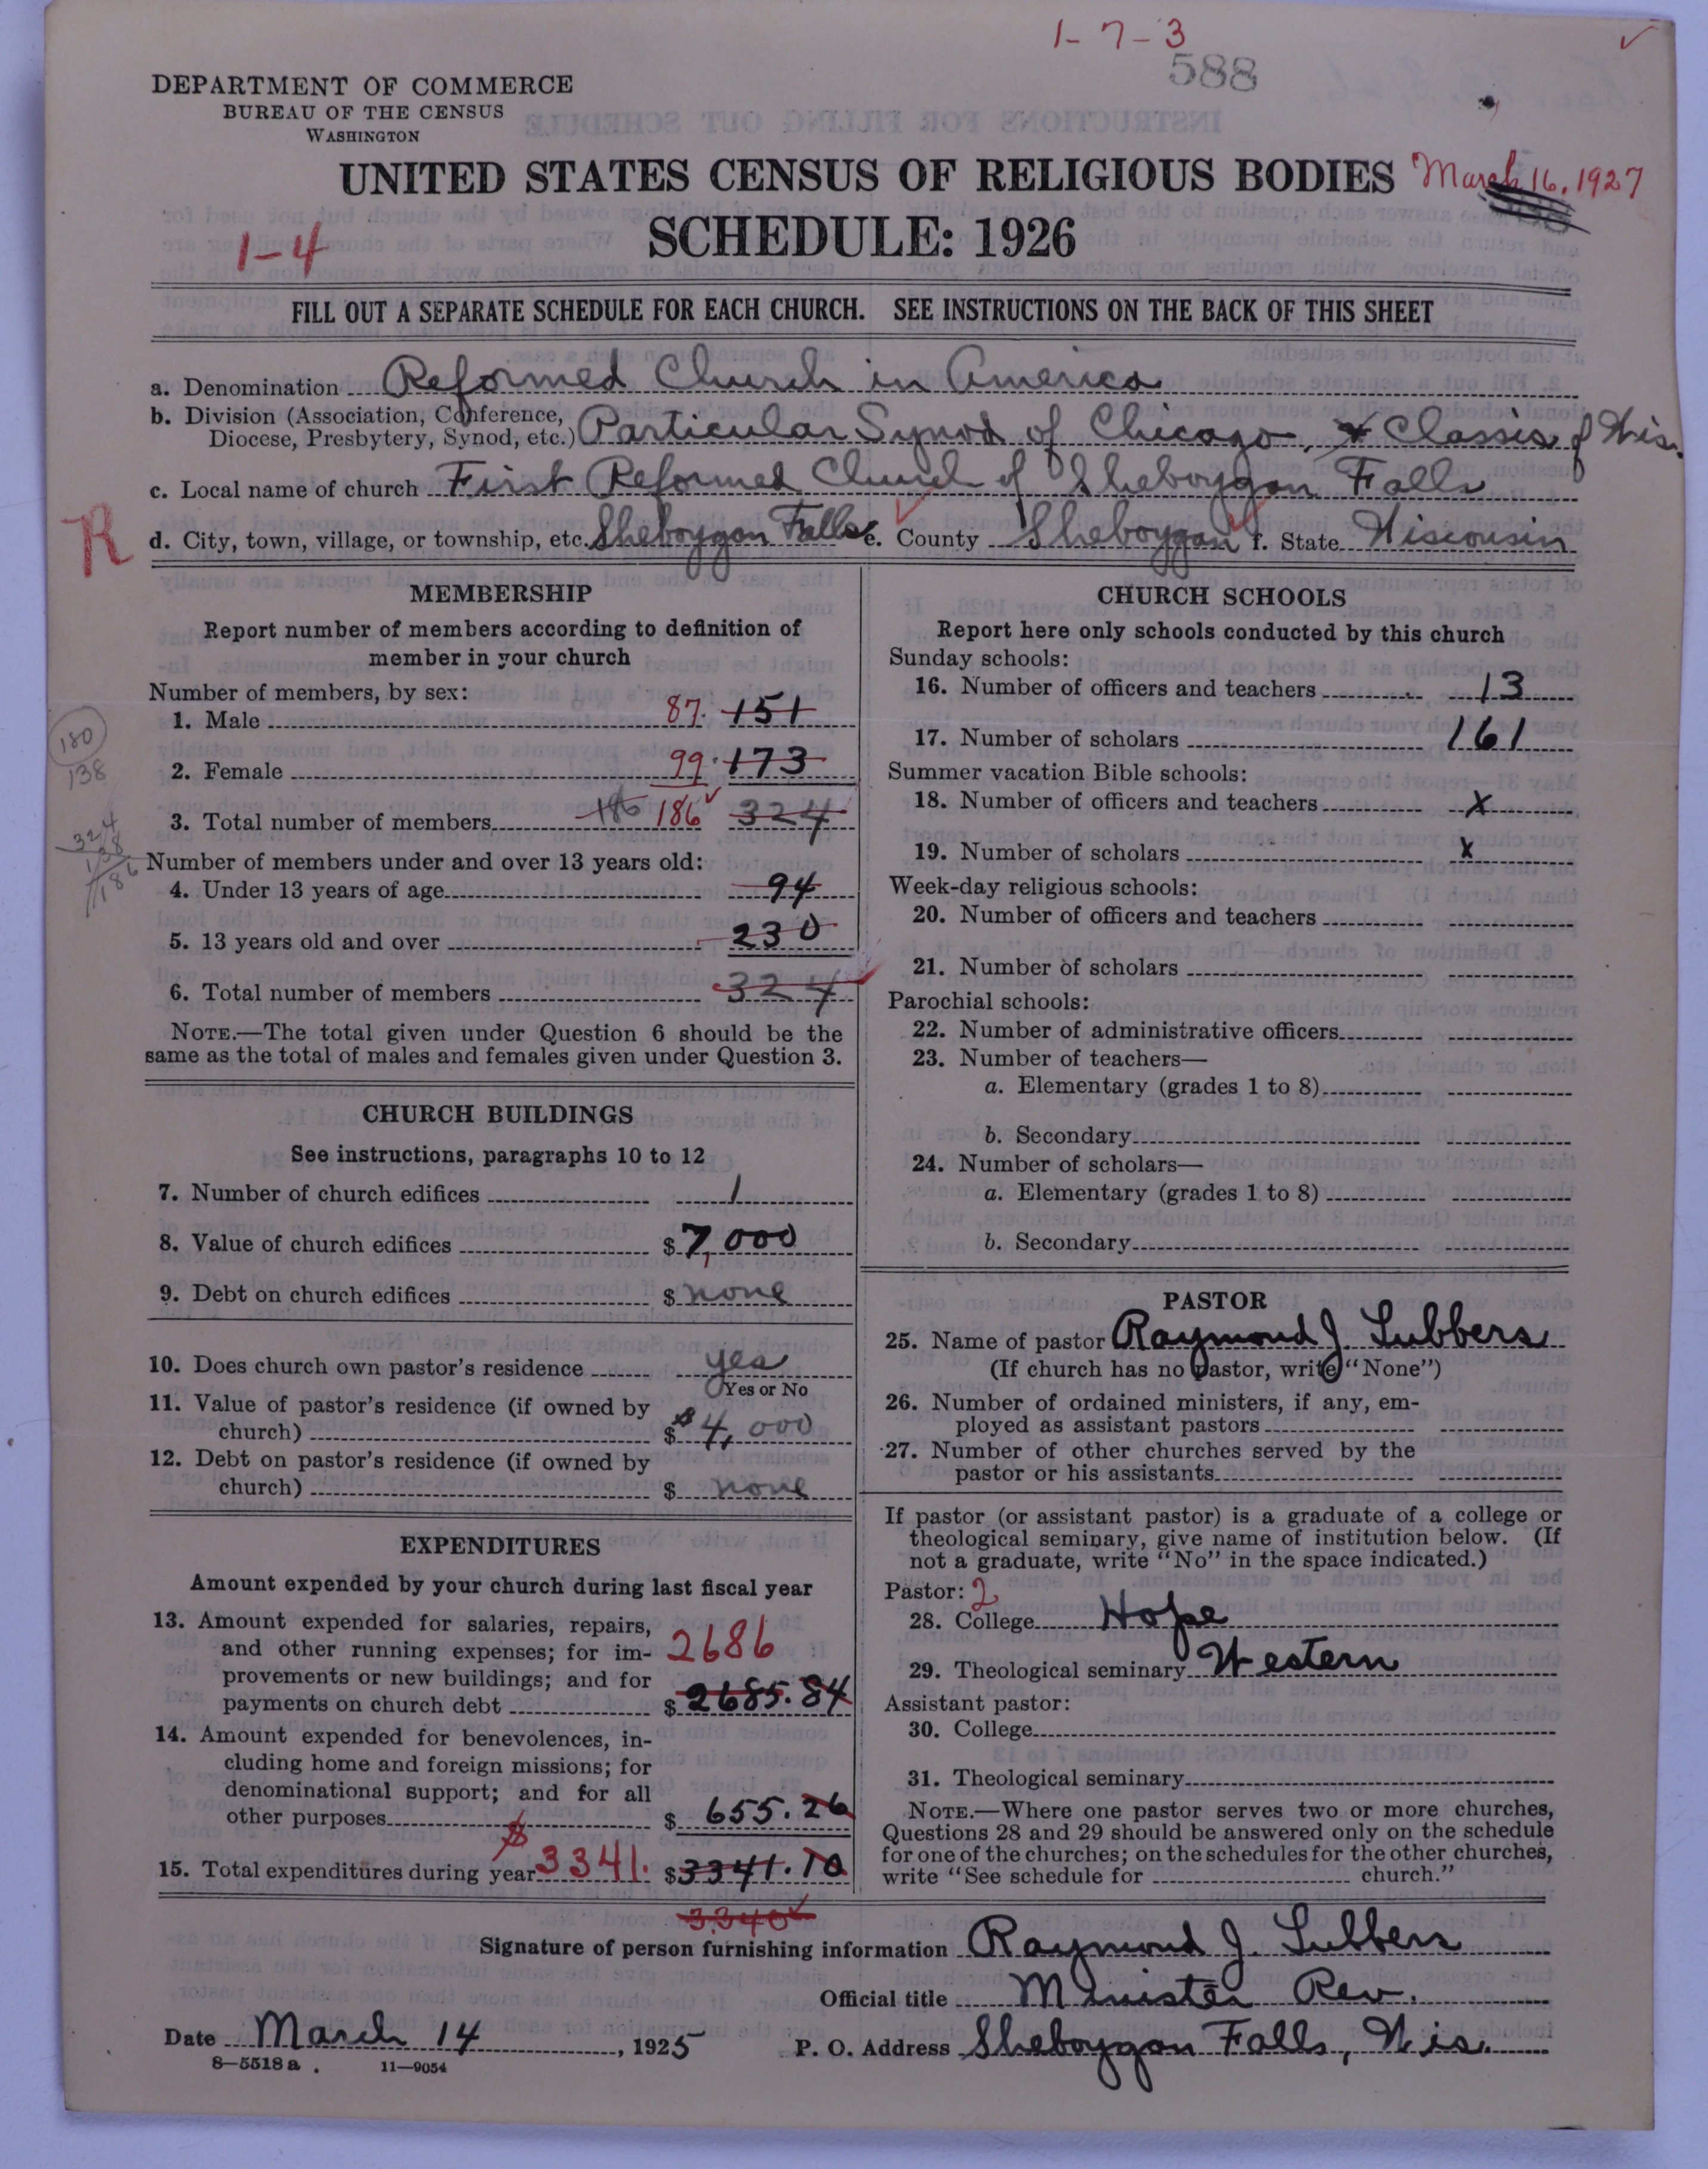 1-7-3
588
DEPARTMENT OF COMMERCE
BUREAU OF THE CENSUS
WASHINGTON
UNITED STATES CENSUS OF RELIGIOUS BODIES March 16, 1927
SCHEDULE: 1926
1-4
FILL OUT A SEPARATE SCHEDULE FOR EACH CHURCH. SEE INSTRUCTIONS ON THE BACK OF THIS SHEET
a. Denomination Reformed Church in America
b. Division (Association, Conference,
Diocese, Presbytery, Synod, etc.) Particular Synod of Chicago, & Classis of Wis.
c. Local name of church First Reformed Church of Sheboygan Falls
R
d. City, town, village, or township, etc. Sheboygan Falls e. County Sheboygan f. State Wisconsin
MEMBERSHIP
Report number of members according to definition of
member in your church
Number of members, by sex:
1. Male 87. 151
2. Female 99. 173
180
138
3. Total number of members 186 186 324
324
138
186
Number of members under and over 13 years old:
4. Under 13 years of age 94
5. 13 years old and over 230
6. Total number of members 324
NOTE.—The total given under Question 6 should be the
same as the total of males and females given under Question 3.
CHURCH BUILDINGS
See instructions, paragraphs 10 to 12
7. Number of church edifices 1
8. Value of church edifices $7,000
9. Debt on church edifices $ none
10. Does church own pastor's residence yes
Yes or No
11. Value of pastor's residence (if owned by
church) $ $4,000
12. Debt on pastor's residence (if owned by
church) $ none
EXPENDITURES
Amount expended by your church during last fiscal year
13. Amount expended for salaries, repairs,
and other running expenses; for im-
provements or new buildings; and for
payments on church debt 2686 $ 2685.84
14. Amount expended for benevolences, in-
cluding home and foreign missions; for
denominational support; and for all
other purposes $ 655.26
15. Total expenditures during year $3341. $3341.10
3340
CHURCH SCHOOLS
Report here only schools conducted by this church
Sunday schools:
16. Number of officers and teachers 13
17. Number of scholars 161
Summer vacation Bible schools:
18. Number of officers and teachers x
19. Number of scholars x
Week-day religious schools:
20. Number of officers and teachers
21. Number of scholars
Parochial schools:
22. Number of administrative officers
23. Number of teachers—
a. Elementary (grades 1 to 8)
b. Secondary
24. Number of scholars—
a. Elementary (grades 1 to 8)
b. Secondary
PASTOR
25. Name of pastor Raymond J. Lubbers
(If church has no pastor, write "None")
26. Number of ordained ministers, if any, em-
ployed as assistant pastors
27. Number of other churches served by the
pastor or his assistants
If pastor (or assistant pastor) is a graduate of a college or
theological seminary, give name of institution below. (If
not a graduate, write "No" in the space indicated.)
Pastor: 2
28. College Hope
29. Theological seminary Western
Assistant pastor:
30. College
31. Theological seminary
NOTE.—Where one pastor serves two or more churches,
Questions 28 and 29 should be answered only on the schedule
for one of the churches; on the schedules for the other churches,
write "See schedule for church."
Signature of person furnishing information Raymond J. Lubbers
Official title Minister Rev.
Date March 14, 1925 P. O. Address Sheboygan Falls, Wis.
8-5518 a 11-9054